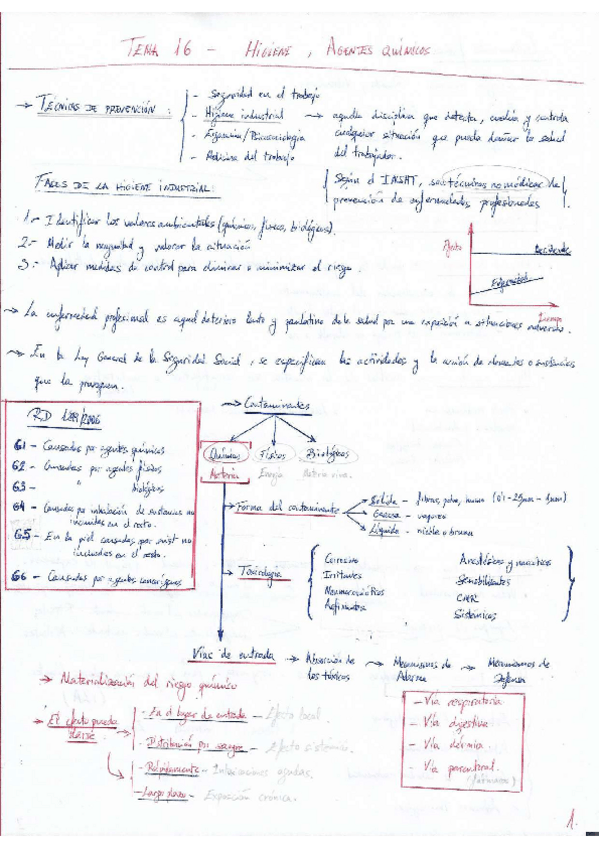 TEMA 16 - HIGIENE, AGENTES QUÍMICOS
→ TÉCNICAS DE PREVENCIÓN:
- Seguridad en el trabajo
- Higiene industrial → aquella disciplina que detecta, evalúa y controla
cualquier situación que pueda dañar la salud
del trabajador.
- Ergonomía/Psicosociología
- Medicina del trabajo
Según el INSHT, son técnicas no médicas de
prevención de enfermedades profesionales
FASES DE LA HIGIENE INDUSTRIAL:
1.- Identificar los valores ambientales (químicos, físicos, biológicos).
2.- Medir la magnitud y valorar la situación
3.- Aplicar medidas de control para eliminar o minimizar el riesgo.
Efecto
Accidente
Enfermedad
Tiempo
→ La enfermedad profesional es aquel deterioro lento y paulatino de la salud por una exposición a situaciones adversas.
→ En la Ley General de la Seguridad Social, se especifican las actividades y la unión de elementos o sustancias
que la provoquen.
RD
G1 - Causadas por agentes químicos
G2 - Causadas por agentes físicos
G3 - " " biológicos
G4 - Causadas por inhalación de sustancias no
incluidas en el resto.
G5 - En la piel causadas por sust no
incluidas en el resto.
G6 - Causadas por agentes cancerígenos
→ Contaminantes
Químicos Físicos Biológicos
Materia Energía Materia viva
→ Forma del contaminante
Sólida - fibras, polvo, humo
Gaseosa - vapores
Líquida - niebla o bruma
→ Toxicología
Corrosivo
Irritantes
Neumoconióticos
Asfixiantes
Anestésicos y narcóticos
Sensibilizantes
CMR
Sistémicos
Vías de entrada → Absorción de
los tóxicos → Mecanismos de
Alarma → Mecanismos de
Defensa
→ Materialización del riesgo químico
→ El efecto puede
darse
- En el lugar de entrada - Efecto local
- Distribución por sangre - Efecto sistémico.
- Rápidamente - Intoxicaciones agudas.
- Largo plazo - Exposición crónica.
- Vía respiratoria
- Vía digestiva
- Vía dérmica
- Vía parenteral.
1.